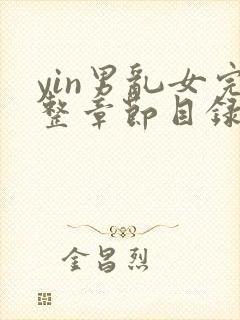 yin男乱女完
整章節目録
金昌烈